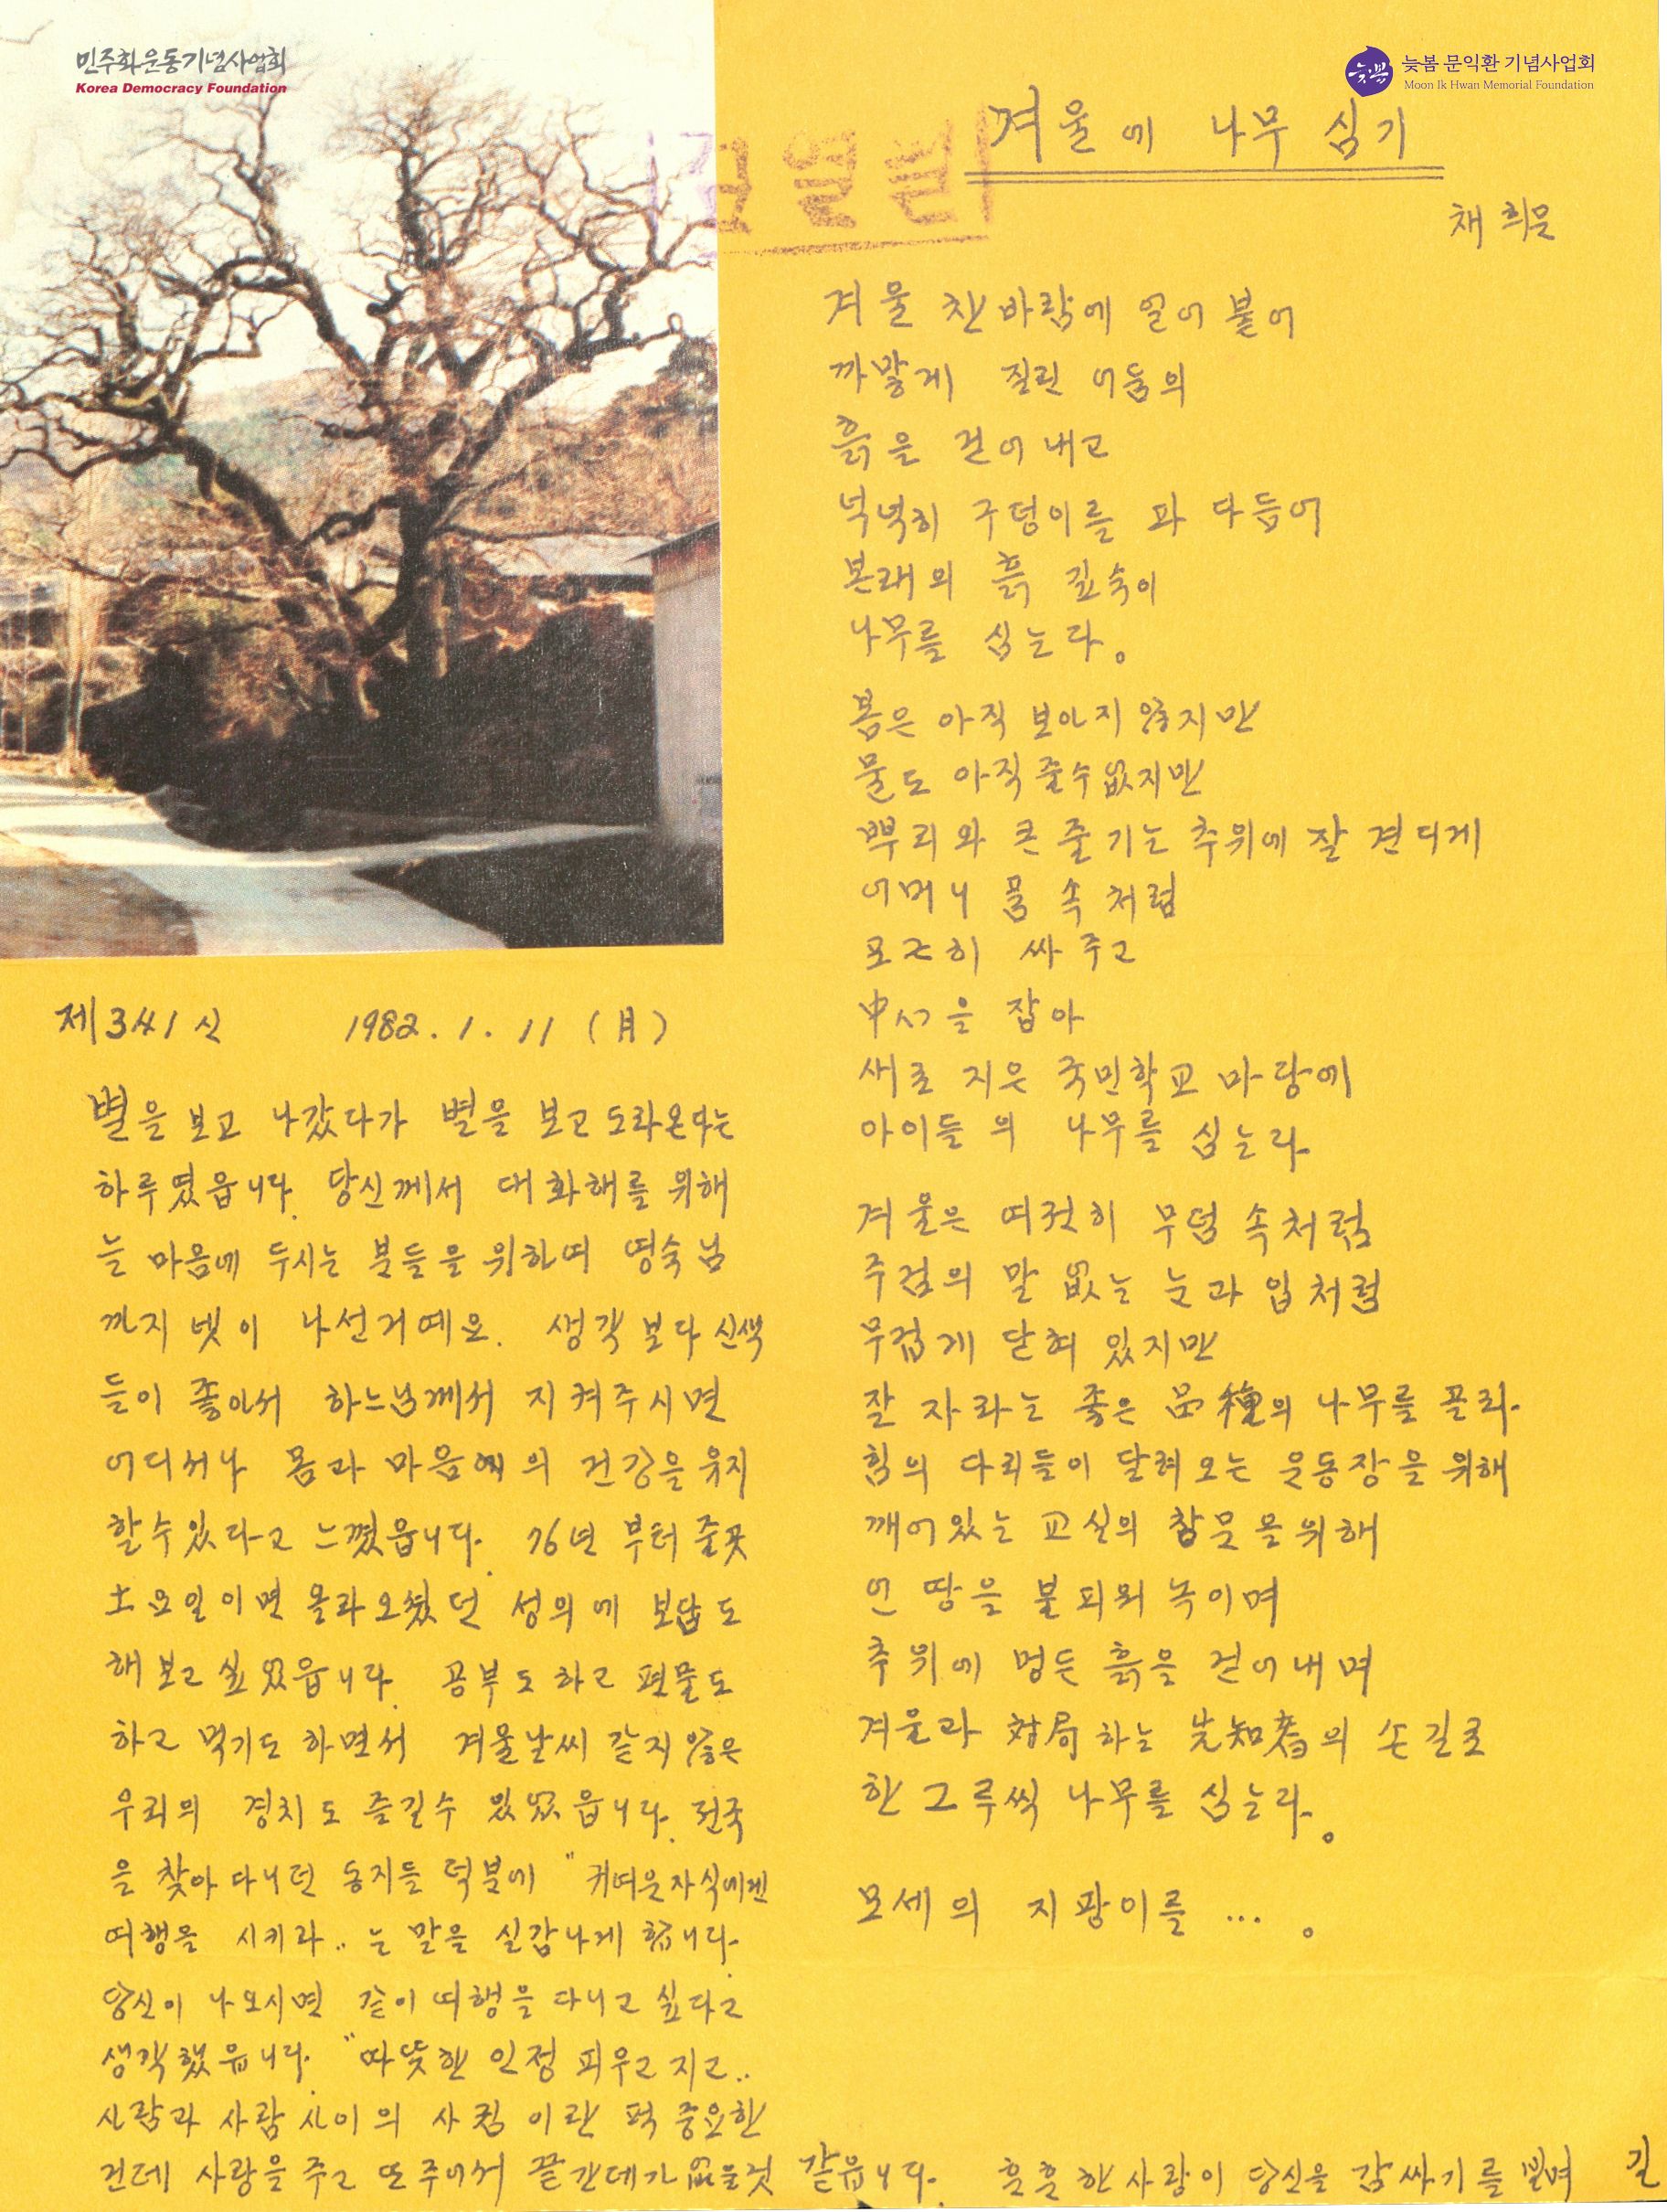 민주화운동기념사업회
Korea Democracy Foundation
늦봄
늦봄 문익환 기념사업회
Moon Ik Hwan Memorial Foundation
검열필
겨울에 나무 심기
채희문
겨울 찬바람에 얼어 붙어
까맣게 질린 어둠의
흙을 걷어 내고
넉넉히 구덩이를 파 다듬어
본래의 흙 깊숙이
나무를 심는다。
봄은 아직 보이지 않지만
물도 아직 줄수 없지만
뿌리와 큰 줄기는 추위에 잘 견디게
어머니 품 속 처럼
포근히 싸 주고
中心을 잡아
새로 지은 국민학교 마당에
아이들의 나무를 심는다.
겨울은 여전히 무덤 속처럼
주검의 말 없는 눈과 입처럼
무겁게 닫혀 있지만
잘 자라는 좋은 品種의 나무를 골라.
힘의 다리들이 달려오는 운동장을 위해
깨어있는 교실의 창문을 위해
언 땅을 불피워 녹이며
추위에 멍든 흙을 걷어내며
겨울과 対局하는 先知者의 손길로
한 그루씩 나무를 심는다。
모세의 지팡이를 ... 。
제3신 1982. 1. 11 (月)
별을 보고 나갔다가 별을 보고 도라온다는
하루였읍니다. 당신께서 대화해를 위해
늘 마음에 두시는 분들을 위하여 영숙님
까지 넷이 나선거예요. 생각보다 신색
들이 좋아서 하느님께서 지켜주시면
어디서나 몸과 마음의 건강을 유지
할수있다고 느꼈읍니다. 76년 부터 줄곳
土요일이면 올라오셨던 성의에 보답도
해보고 싶었읍니다. 공부도 하고 편물도
하고 먹기도 하면서 겨울날씨 같지 않은
우리의 경치도 즐길수 있었읍니다. 전국
을 찾아 다니던 동지들 덕분에 "귀여운자식에겐
여행을 시키라.. 는 말을 실감나게 합니다.
당신이 나오시면 같이 여행을 다니고 싶다고
생각했읍니다. "따뜻한 인정 피우고 지고..
사람과 사람 사이의 사귐이란 퍽 중요한
건데 사랑을 주고 또 주어서 끝간데가 없을것 같읍니다. 훈훈한 사랑이 당신을 감싸기를 빌며 길